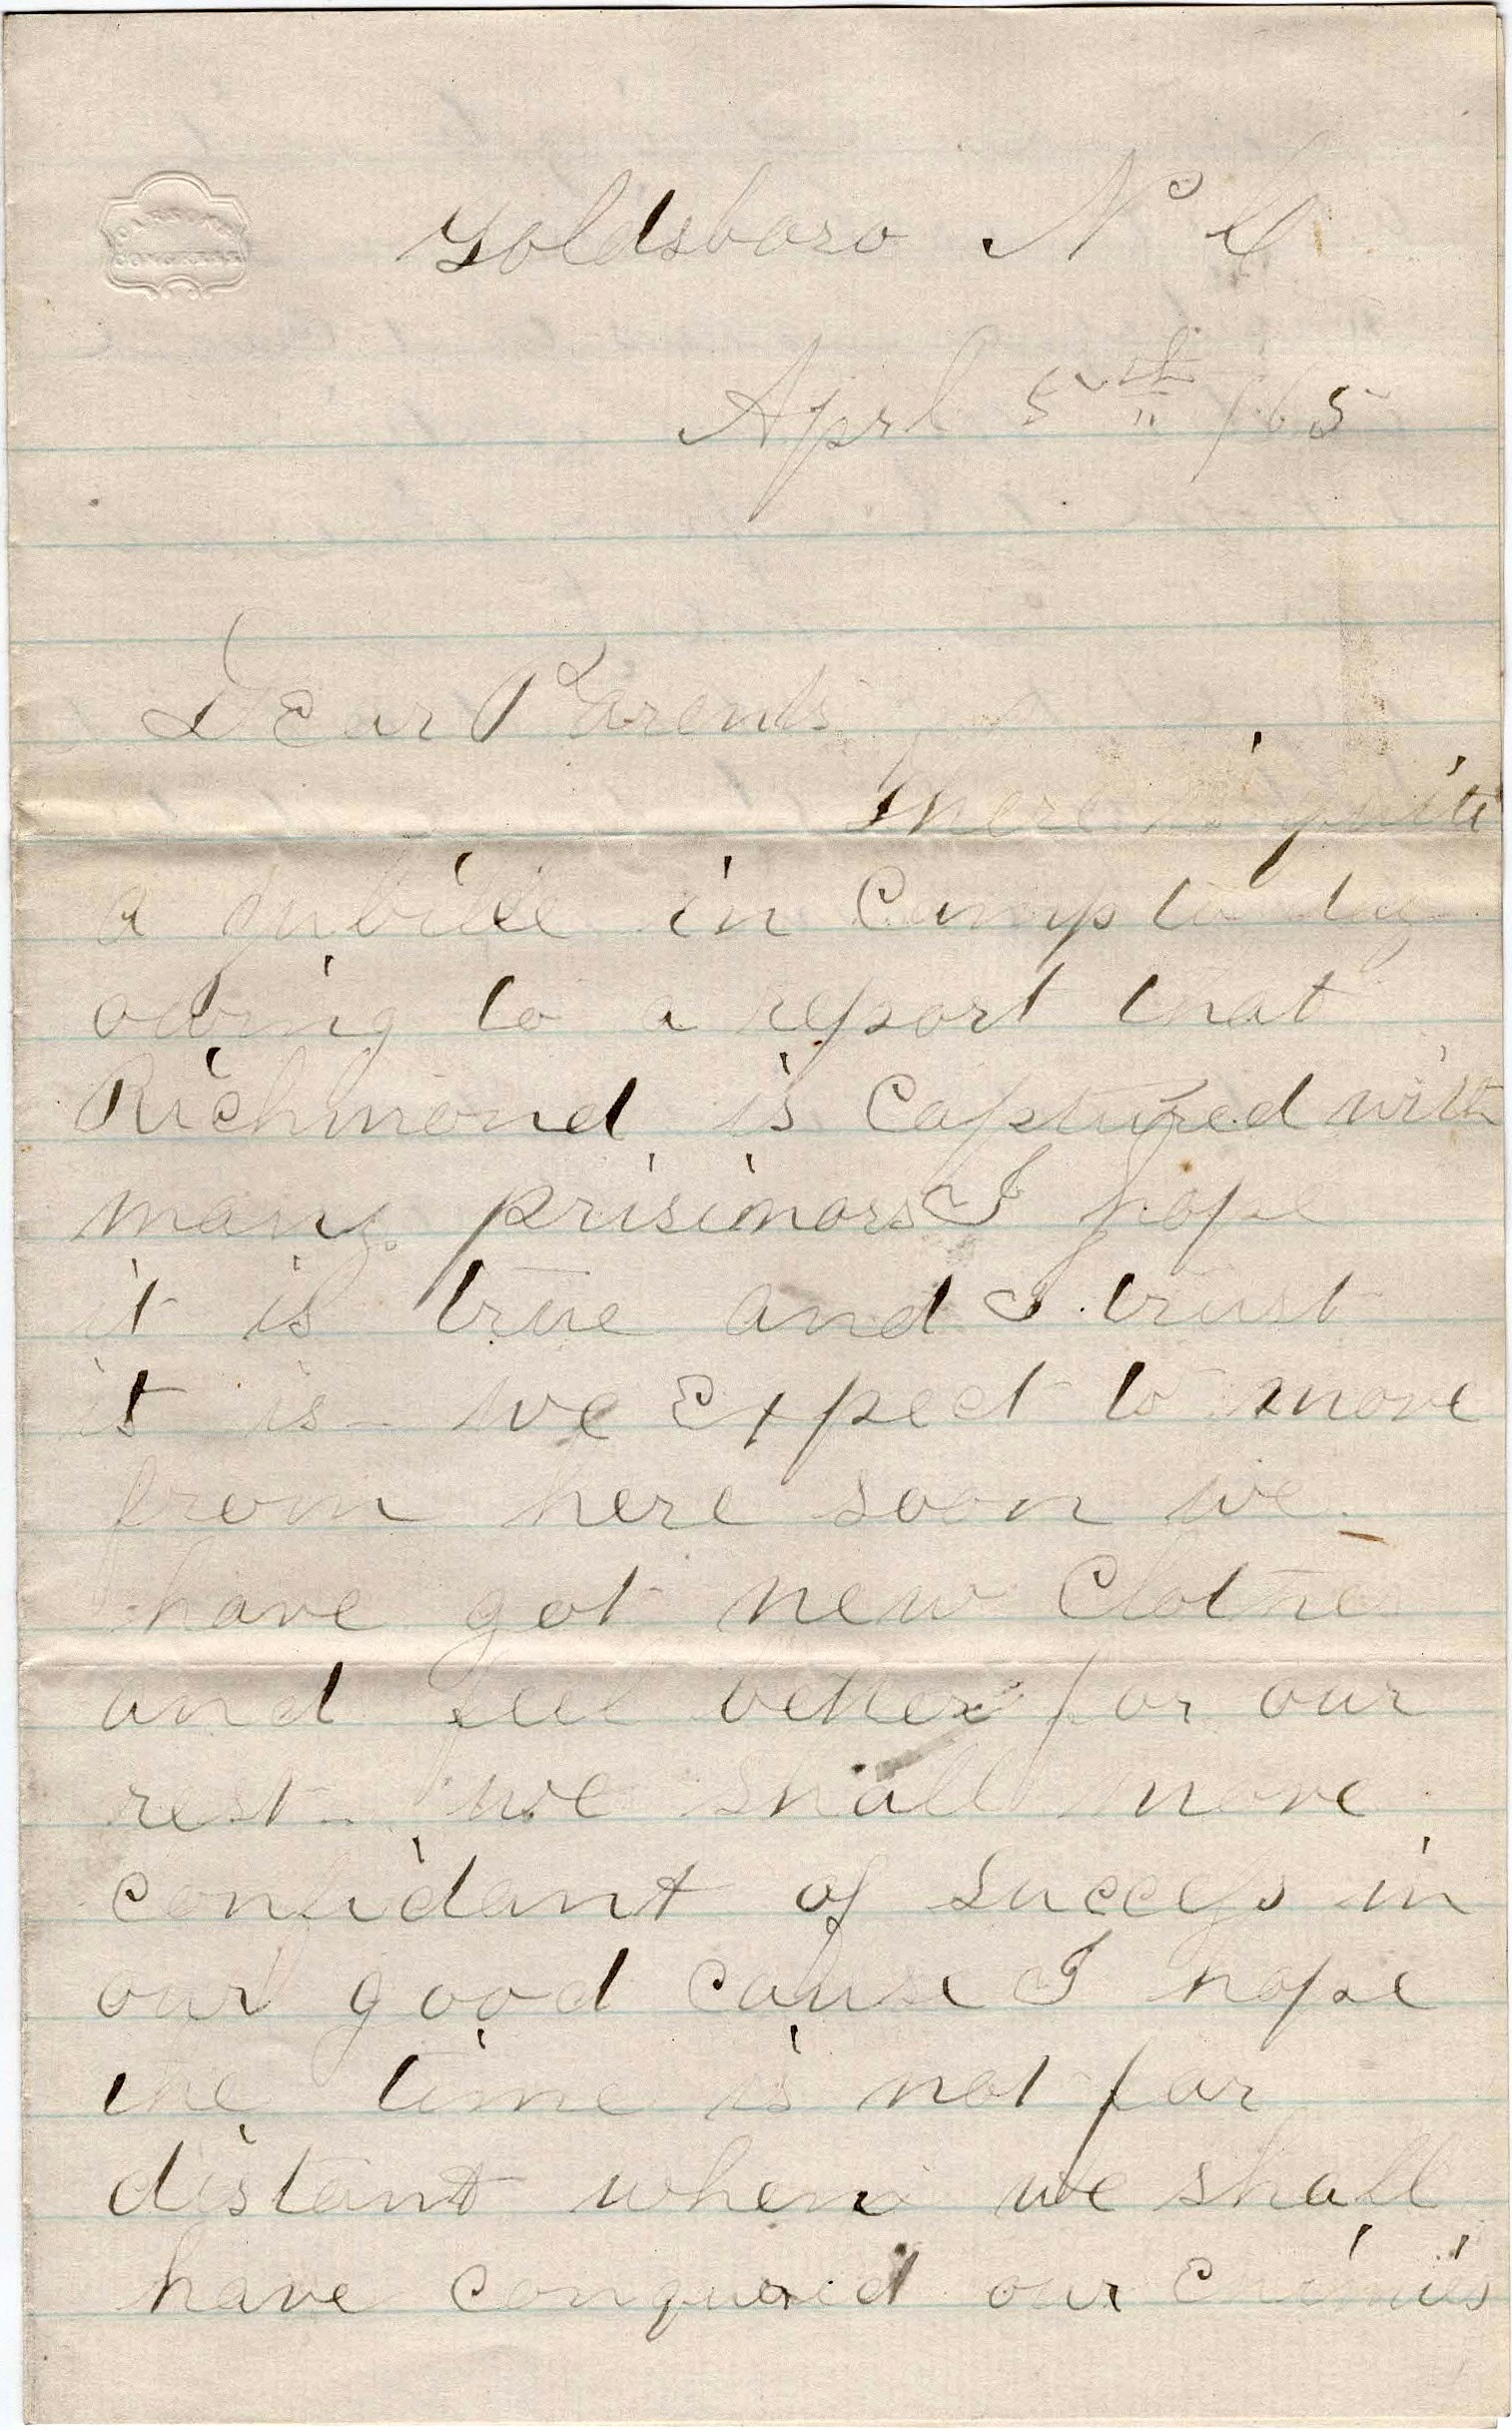 CARSON'S
CONGRESS
Goldsboro N C
Aprl 5th /65
Dear Parents
there is quite
a jubilee in Camp to day
owing to a report that
Richmond is Captured with
many prisinors I hope
it is true and I trust
it is - we Expect to move
from here soon we
have got new Clothe
and feel better for our
rest - we shall move
confidant of success in
our good cause I hope
the time is not far
distant when we shall
have conquered our Enimies